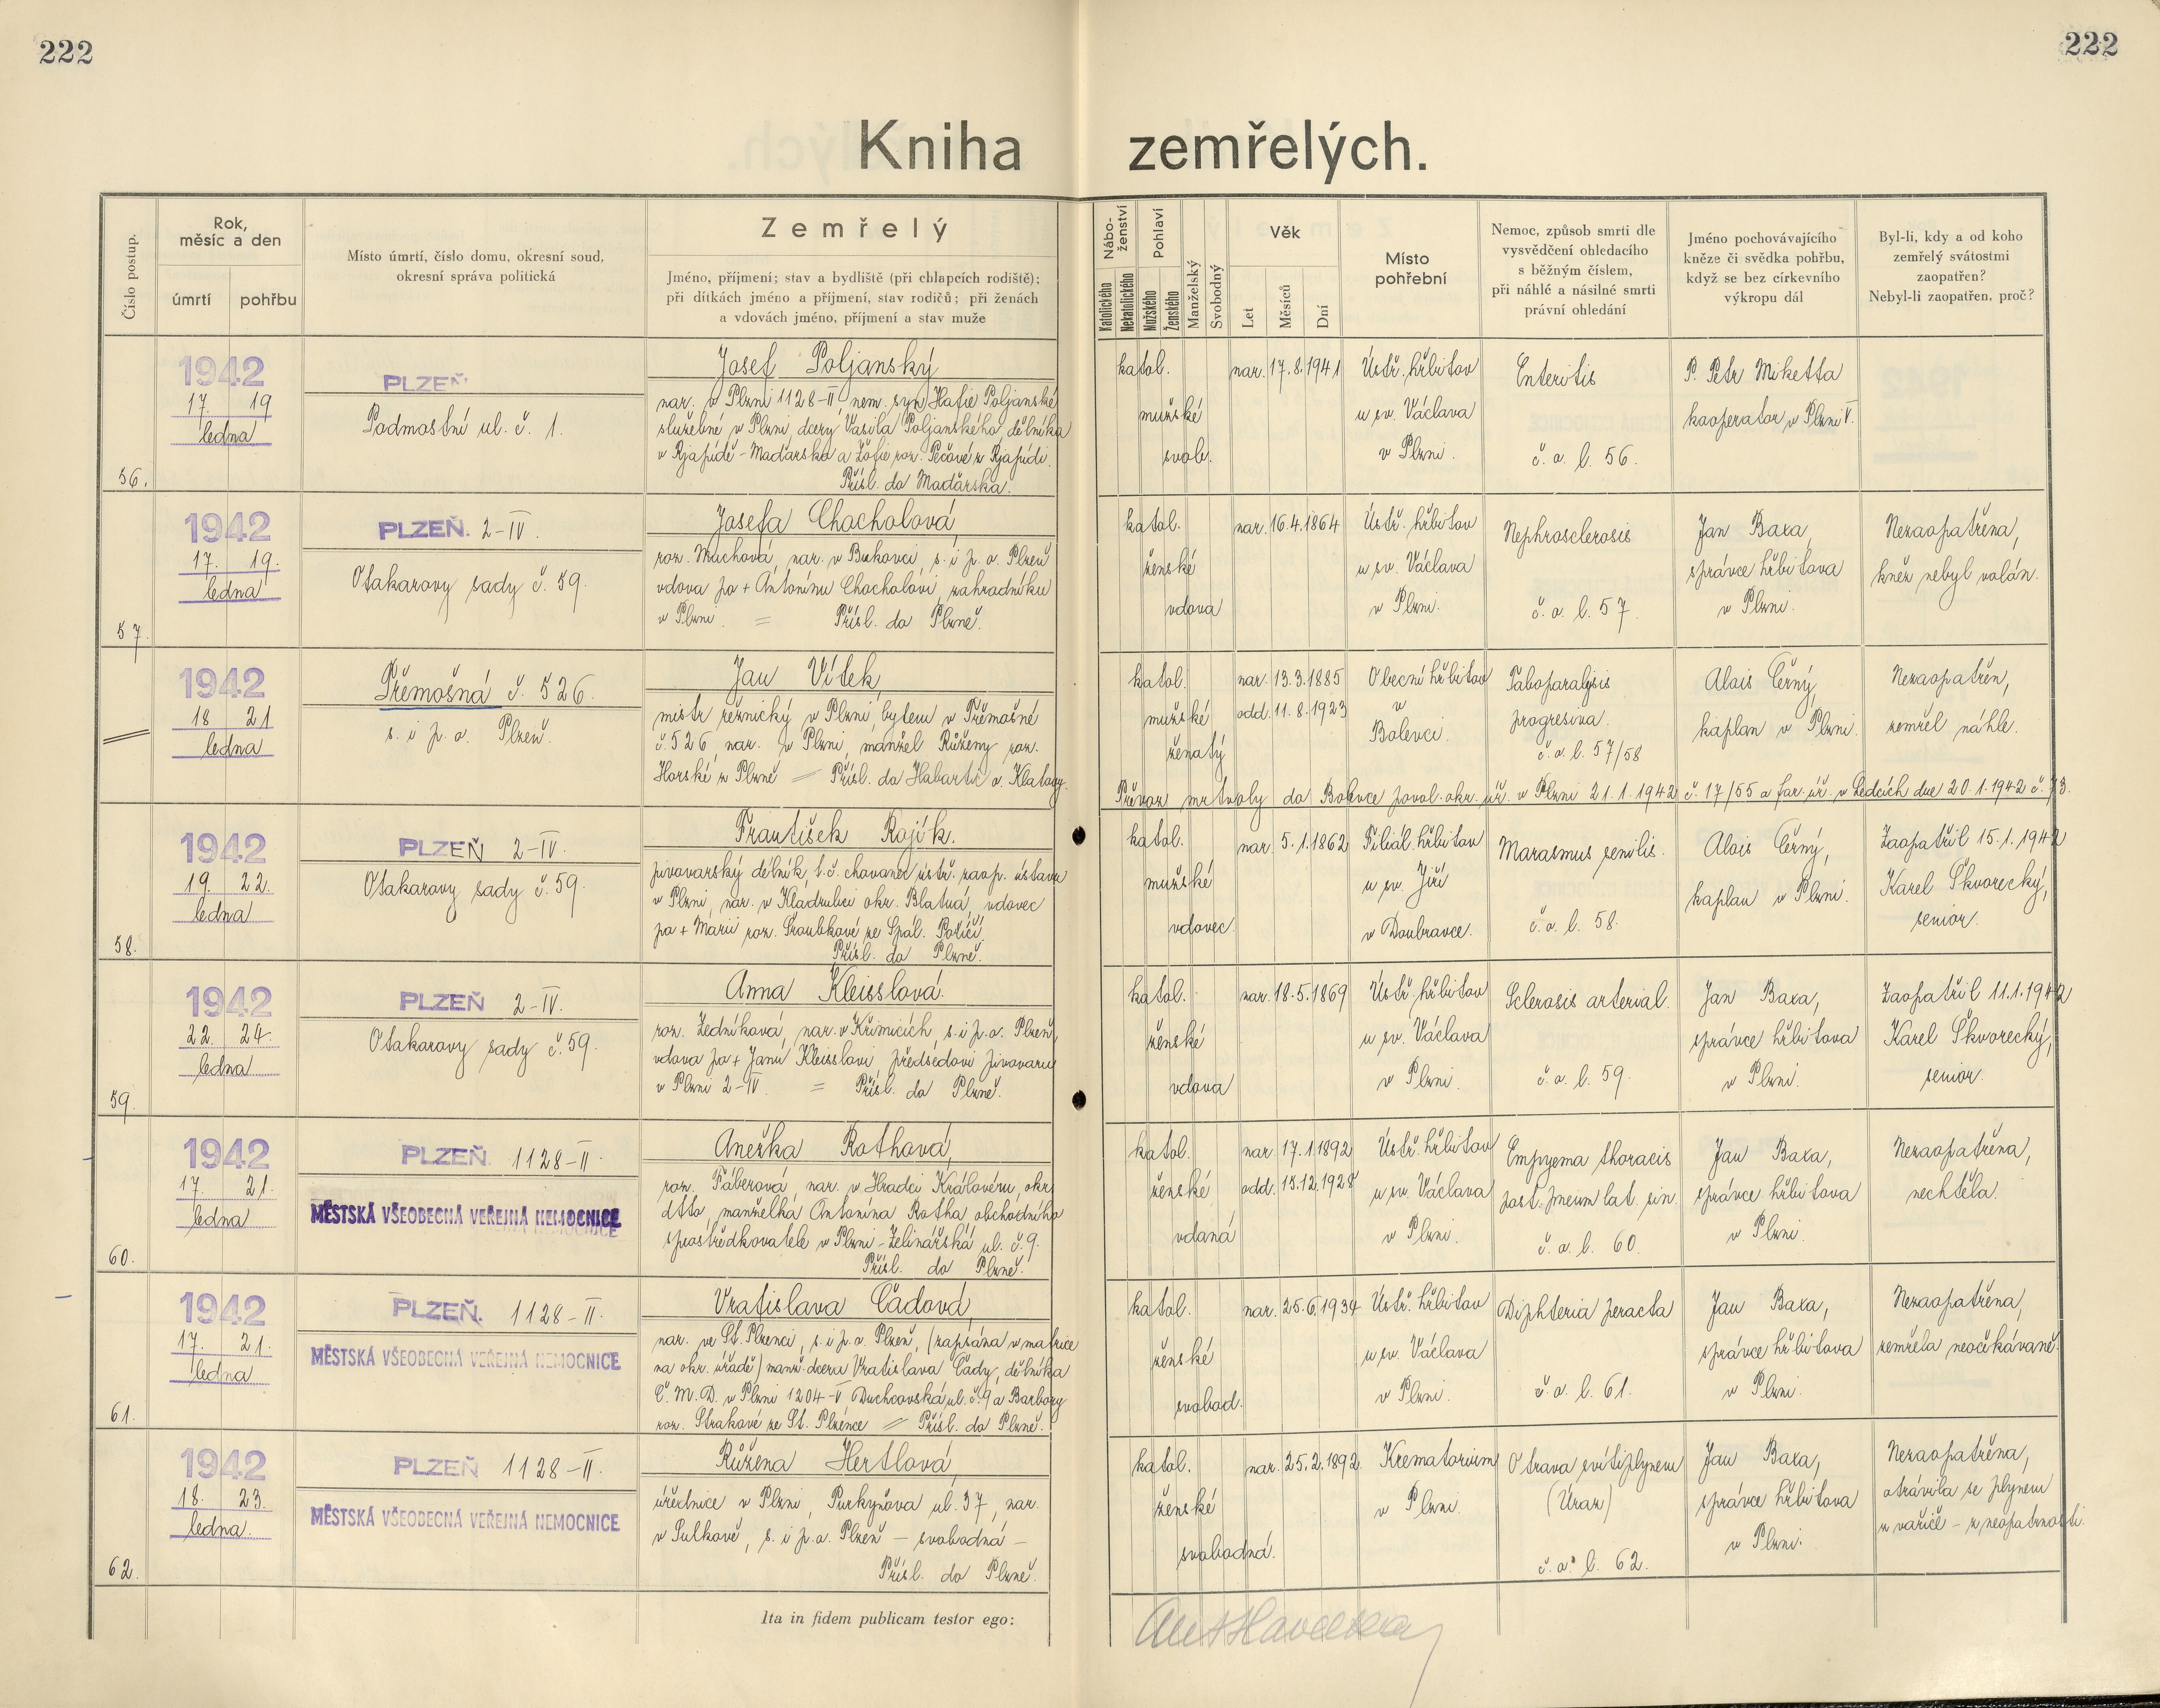 222
222
Kniha zemřelých.
Číslo postup.
Rok, měsíc a den
úmrtí
pohřbu
Místo úmrtí, číslo domu, okresní soud,
okresní správa politická
Zemřelý
Jméno, příjmení; stav a bydliště (při chlapcích rodiště);
při dítkách jméno a příjmení, stav rodičů; při ženách
a vdovách jméno, příjmení a stav muže
Nábo-
ženství
Katolického
Nekatolického
Pohlaví
Mužského
Ženského
Manželský
Svobodný
Věk
Let
Měsíců
Dní
Místo
pohřební
Nemoc, způsob smrti dle
vysvědčení ohledacího
s běžným číslem,
při náhlé a násilné smrti
právní ohledání
Jméno pochovávajícího
kněze či svědka pohřbu,
když se bez církevního
výkropu dál
Byl-li, kdy a od koho
zemřelý svátostmi
zaopatřen?
Nebyl-li zaopatřen, proč?
56.
1942
17. 19
ledna
PLZEŇ
Podmostní ul. č. 1.
Josef Poljanský
nar. v Plzni 1128-II, nem. syn Hafie Poljanské
služebné v Plzni, dcery Vasila Poljanského, dělníka
v Rjapidě - Maďarsko a Žofie roz. Pečové z Rjapidi.
Přísl. do Maďarska.
katol.
mužské
svob.
nar. 17.8.1941
Ústř. hřbitov
u sv. Václava
v Plzni.
Enteritis
č. o. l. 56.
P. Petr Miketta
kooperator v Plzni V.
57.
1942
17. 19.
ledna
PLZEŇ. 2-IV.
Otakarovy sady č. 59.
Josefa Chocholová,
roz. Muchová, nar. v Bukovci, s. i p. o. Plzeň
vdova po + Antonínu Chocholovi, zahradníku
v Plzni. = Přísl. do Plzně.
katol.
ženské
vdova
nar. 16.4.1864
Ústř. hřbitov
u sv. Václava
v Plzni.
Nephrosclerosis
č. o. l. 57
Jan Baxa,
správce hřbitova
v Plzni.
Nezaopatřena,
kněz nebyl volán.
1942
18 21
ledna
Přemošná č. 526.
s. i p. o. Plzeň.
Jan Vítek,
mistr řeznický v Plzni, bytem v Přemošné
č. 526, nar. v Plzni, manžel Růženy roz.
Horské z Plzně = Přísl. do Habartic o. Klatovy.
katol.
mužské
ženatý
nar. 13.3.1885
odd. 11.8.1923
Obecní hřbitov
v
Bolevci.
Taboparalysis
progresiva.
č. o. l. 57/58
Alois Černý,
kaplan v Plzni.
Nezaopatřen,
zemřel náhle.
Převoz mrtvoly do Bolevce povol. okr. úř. v Plzni 21.1.1942 č. 17/55 a far. úř. v Ledcích dne 20.1.1942 č. 73.
58.
1942
19. 22.
ledna
PLZEŇ 2-IV.
Otakarovy sady č. 59.
František Rojík.
pivovarský dělník, t. č. chovanec ústř. zaop. ústavu
v Plzni, nar. v Kladrubci okr. Blatná, vdovec
po + Marii roz. Šroubkové ze Spál. Poříčí.
Přísl. do Plzně.
katol.
mužské
vdovec.
nar. 5.1.1862
Filiál. hřbitov
u sv. Jiří
v Doubravce.
Marasmus senilis.
č. o. l. 58.
Alois Černý,
kaplan v Plzni.
Zaopatřil 15.1.1942
Karel Škvorecký,
senior.
59.
1942
22. 24.
ledna
PLZEŇ 2-IV.
Otakarovy sady č. 59.
Anna Kleisslová.
roz. Zedníková, nar. v Křimicích s. i p. o. Plzeň,
vdova po + Janu Kleisslovi, předsedovi pivovaru
v Plzni 2-IV. = Přísl. do Plzně.
katol.
ženské
vdova
nar. 18.5.1869
Ústř. hřbitov
u sv. Václava
v Plzni.
Sclerosis arterial.
č. o. l. 59.
Jan Baxa,
správce hřbitova
v Plzni.
Zaopatřil 11.1.1942
Karel Škvorecký,
senior.
60.
1942
17. 21.
ledna
PLZEŇ. 1128-II.
MĚSTSKÁ VŠEOBECNÁ VEŘEJNÁ NEMOCNICE
Anežka Rothová,
roz. Fáberová, nar. v Hradci Královéru, okr.
dtto, manželka Antonína Rotha, obchodního
sprostředkovatele v Plzni - Zelinářská ul. č. 9.
Přísl. do Plzně.
katol.
ženské
vdaná
nar. 17.1.1892
odd. 15.12.1928
Ústř. hřbitov
u sv. Václava
v Plzni.
Empyema thoracis
post. pneum lat. sin.
č. o. l. 60.
Jan Baxa,
správce hřbitova
v Plzni.
Nezaopatřena,
nechtěla.
61.
1942
17. 21.
ledna
PLZEŇ. 1128-II.
MĚSTSKÁ VŠEOBECNÁ VEŘEJNÁ NEMOCNICE
Vratislava Čadová,
nar. ve St. Plzenci, s. i p. o. Plzeň, (zapsána v matrice
na okr. úřadě) manž. dcera Vratislava Čady, dělníka
Č. M. D. v Plzni 1204-V, Duchcovská ul. č. 9 a Barbory
roz. Strakové ze St. Plzence = Přísl. do Plzně.
katol.
ženské
svobod.
nar. 25.6.1934
Ústř. hřbitov
u sv. Václava
v Plzni.
Diphteria peracta
č. o. l. 61.
Jan Baxa,
správce hřbitova
v Plzni.
Nezaopatřena,
zemřela neočekávaně.
62.
1942
18. 23.
ledna.
PLZEŇ 1128-II.
MĚSTSKÁ VŠEOBECNÁ VEŘEJNÁ NEMOCNICE
Růžena Hertlová,
úřednice v Plzni, Purkyňova ul. 37, nar.
v Sulkově, s. i p. o. Plzeň - svobodná -
Přísl. do Plzně.
katol.
ženské
svobodná.
nar. 25.2.1892.
Krematorium
v Plzni.
Otrava svítiplynem
(Úraz)
č. o. l. 62.
Jan Baxa,
správce hřbitova
v Plzni.
Nezaopatřena,
otrávila se plynem
z vařiče - z neopatrnosti.
Ita in fidem publicam testor ego: